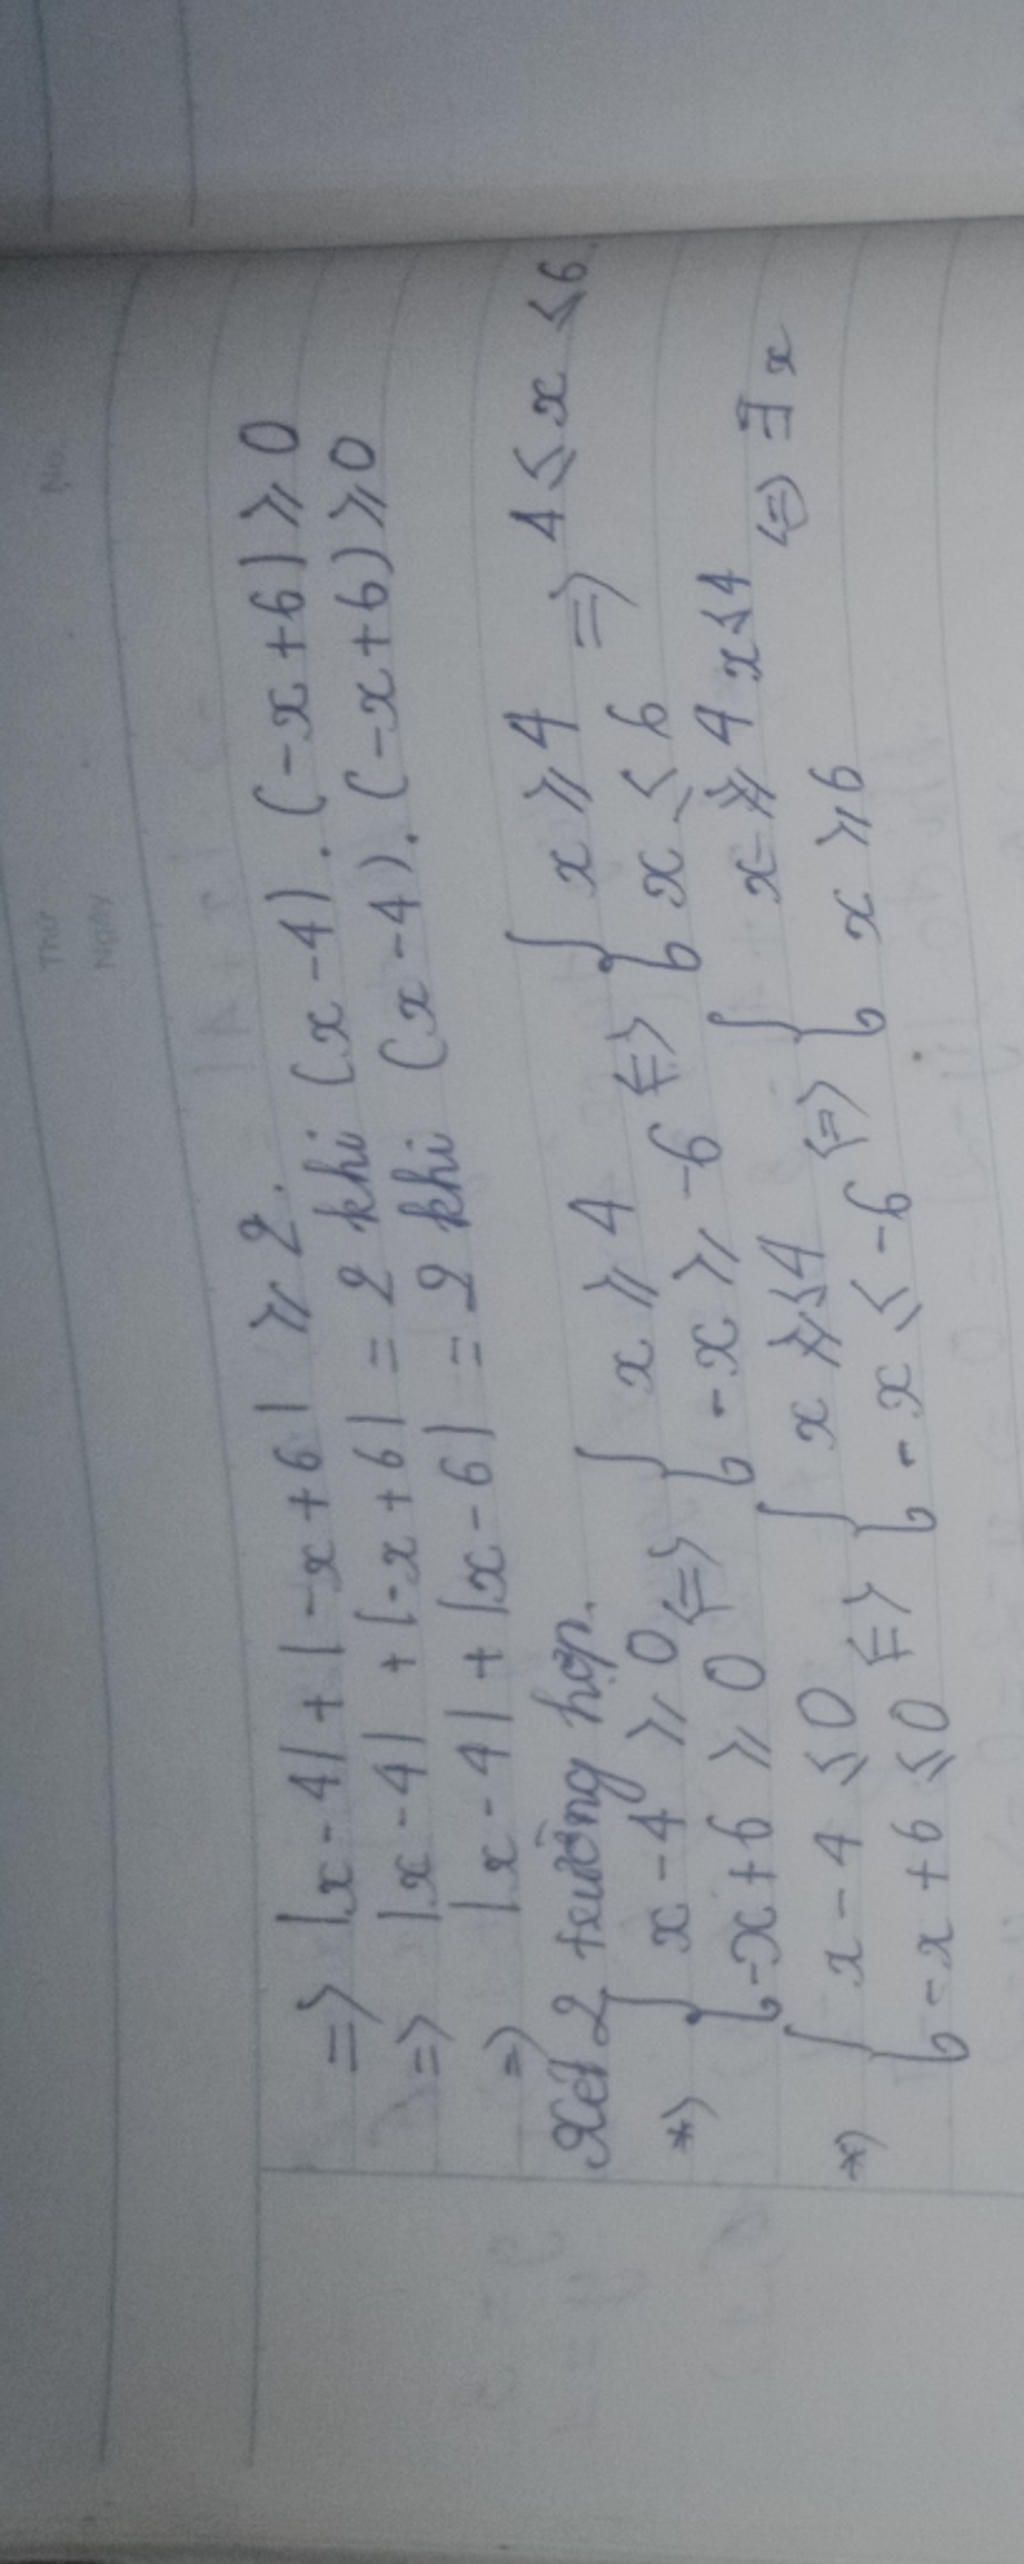 Thứ
Ngày
No.
=> |x-4| + |-x+6| ⩾ 2.
=> |x-4| + |-x+6| = 2 khi (x-4).(-x+6) ⩾ 0
=> |x-4| + |x-6| = 2 khi (x-4).(-x+6) ⩾ 0
Xét 2 trường hợp.
*) { x-4 ⩾ 0 <=> { x ⩾ 4 <=> { x ⩾ 4 => 4 ⩽ x ⩽ 6.
{ -x+6 ⩾ 0 { -x ⩾ -6 { x ⩽ 6
*) { x-4 ⩽ 0 <=> { x ⩽ 4 <=> { x ⩽ 4 <=> ∃ x
{ -x+6 ⩽ 0 { -x ⩽ -6 { x ⩾ 6